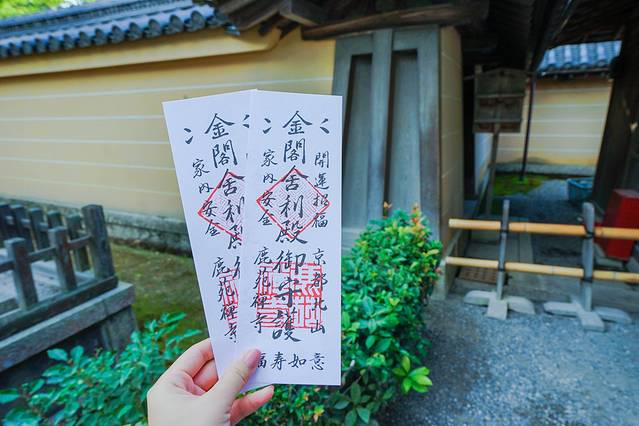 開運招福 京都北山
金閣舎利殿御守護
家内安全 鹿苑禅寺
福寿如意
金閣舎利殿
家内安全 鹿苑禅寺